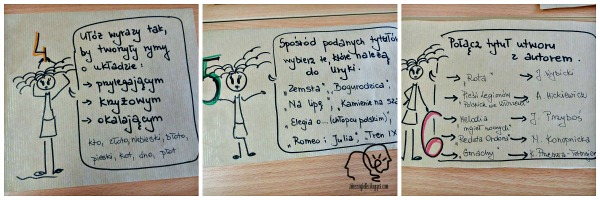 4
Ułóż wyrazy tak,
by tworzyły rymy
o układzie:
→ przylegającym
→ krzyżowym
→ okalającym
kto, złoto, niebieski, błoto,
pieski, kot, dno, płot
5
Spośród podanych tytułów
wybierz te, które należą
do liryki.
"Zemsta", "Bogurodzica",
"Na lipę", "Kamienie na sza
"Elegia o... (chłopcu polskim)",
"Romeo i Julia", "Tren IX
6
Połącz tytuł utworu
z autorem.
→ "Rota" → J. Wybicki
→ Pieśń Legionów → A. Mickiewicz
→ Melodia → J. Przyboś
→ "Reduta Ordona" → M. Konopnicka
→ "Gmachy" → K. Przerwa-Tetmajer